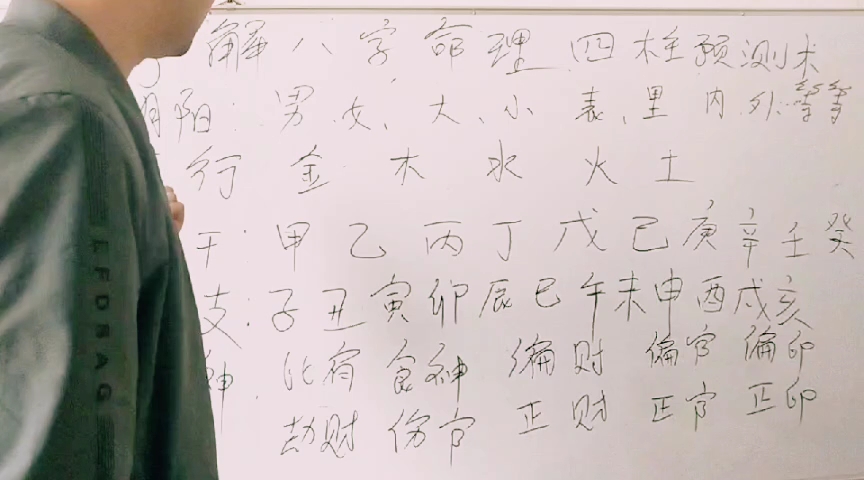 解八字命理四柱预测术
阴阳: 男、女、大、小 表、里 内 外、等等
行 金 木 水 火 土
干: 甲 乙 丙 丁 戊 己 庚 辛 壬 癸
支: 子 丑 寅 卯 辰 巳 午 未 申 酉 戌 亥
神. 比肩 食神 偏财 偏官 偏印
劫财 伤官 正财 正官 正印
LFDRAG